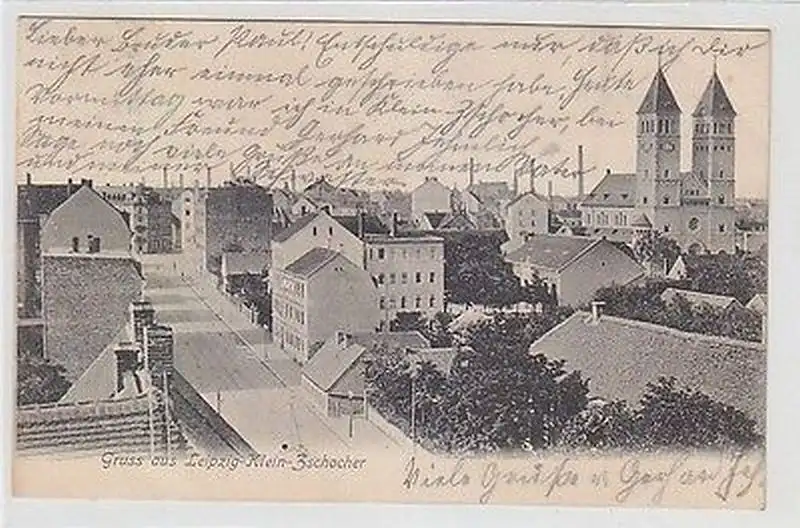 Lieber Bruder Paul! Entschuldige nur, daß ich Dir
nicht eher einmal geschrieben habe, heute
Vormittag war ich in Klein-Zschocher, bei
meinem Freund Gerhard
Sage noch viele Grüße an meinen Vater
und meine
Gruss aus Leipzig-Klein-Zschocher
Viele Grüße v. Gerhard